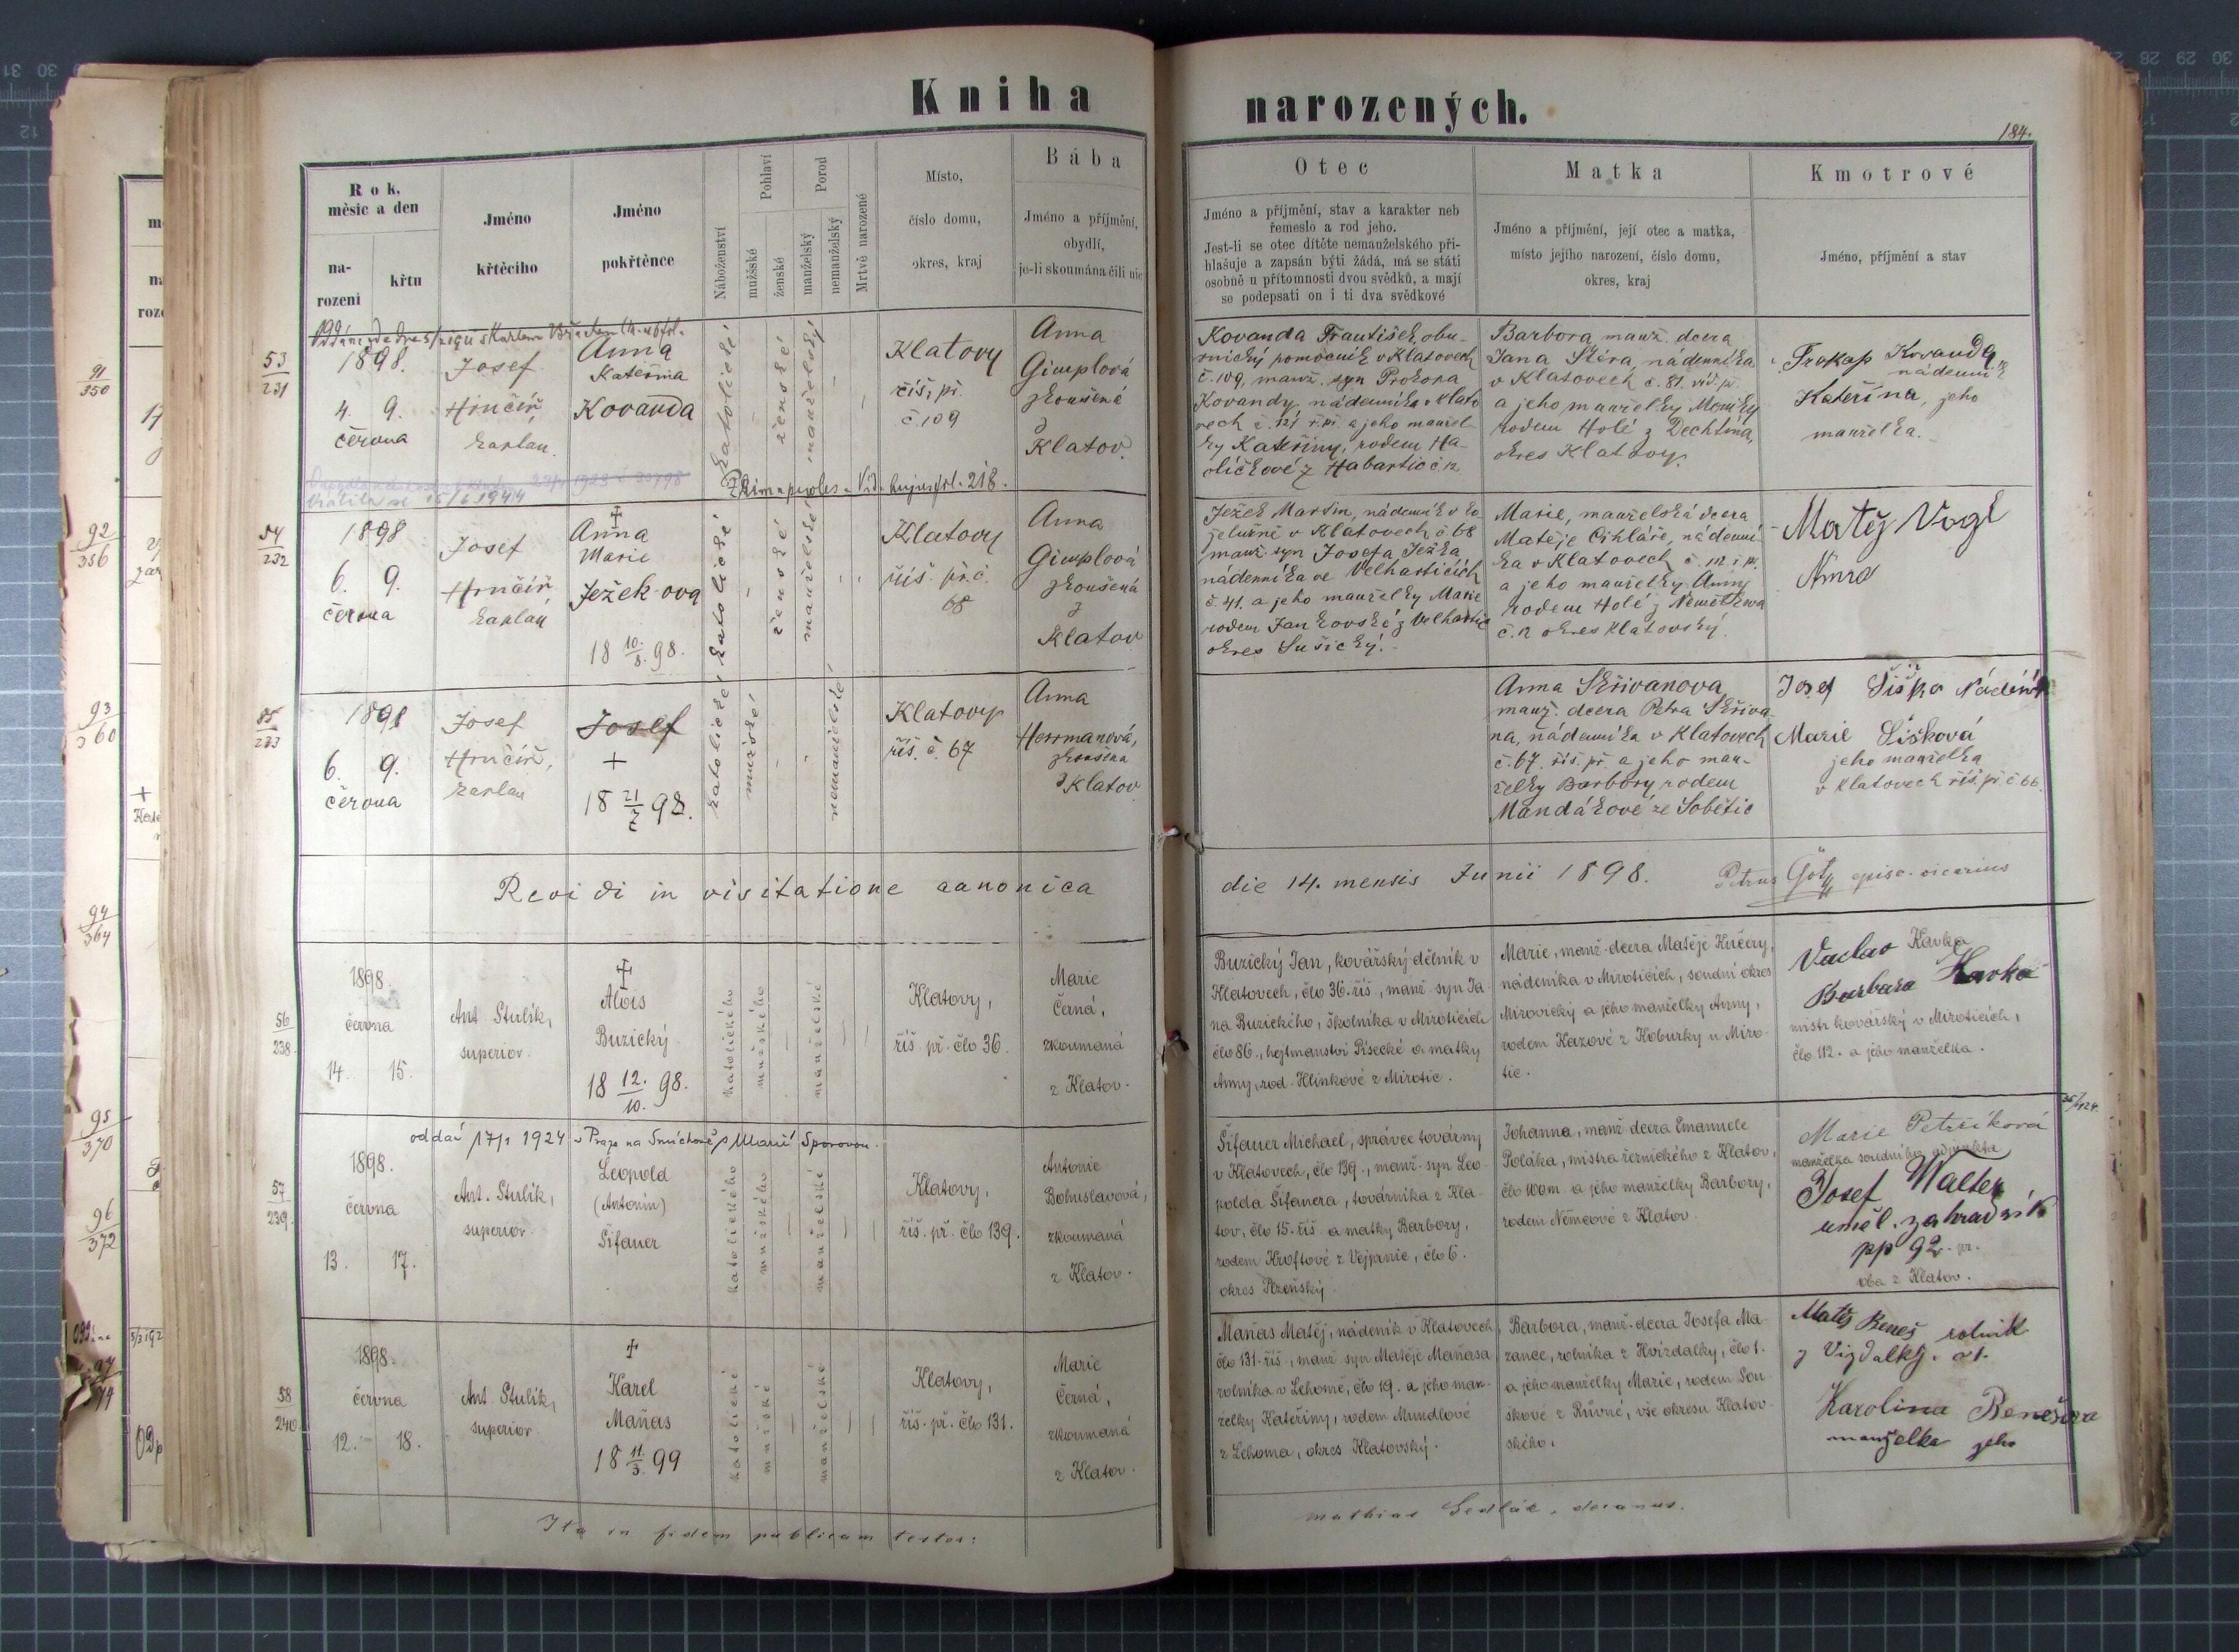 Kniha
narozených.
184.
Rok,
měsíc a den
na-
rození
křtu
Jméno
křtěcího
Jméno
pokřtěnce
Náboženství
Pohlaví
mužské
ženské
Porod
manželský
nemanželský
Mrtvě narozené
Místo,
číslo domu,
okres, kraj
Bába
Jméno a příjmění,
obydlí,
je-li skoumána čili nic
Otec
Jméno a příjmění, stav a karakter neb
řemeslo a rod jeho.
Jest-li se otec dítěte nemanželského při-
hlašuje a zapsán býti žádá, má se státi
osobně u přítomnosti dvou svědků, a mají
se podepsati on i ti dva svědkové
Matka
Jméno a příjmění, její otec a matka,
místo jejího narození, číslo domu,
okres, kraj
Kmotrové
Jméno, příjmění a stav
53
231
1898.
4. 9.
června
Josef
Hrnčíř
kaplan.
Anna
Kateřina
Kovanda
katolické
ženské
manželský
Klatovy
říš. př.
č 109
Anna
Gimplová
zkoušená
z
Klatov.
Kovanda František, obu-
vnický pomocník v Klatovech
č. 109, manž. syn Prokopa
Kovandy, nádenníka v Klato
vech č. 121 ř. př. a jeho manžel-
ky Kateřiny, rodem Ha-
ličkové z Habartic č 12
Barbora, manž. dcera
Jana Skira, nádenníka
v Klatovech č. 81. říš. př.
a jeho manželky Moniky
rodem Holé z Dechtína,
okres Klatovy.
Prokop Kovanda
nádenník
Kateřina, jeho
manželka.
vrátila se 15/6 1944
hujus fol. 218.
54
232
1898
6. 9.
června
Josef
Hrnčíř
kaplan
Anna
Marie
Ježek-ova
18 10/8. 98.
katolické
ženské
manželské
Klatovy
říš. př. č.
68
Anna
Gimplová
zkoušená
z
Klatov
Ježek Martin, nádenník v ko
želužně v Klatovech č 68
manž. syn Josefa Ježka
nádenníka ve Velharticích
č. 41. a jeho manželky Marie
rodem Jankovské z Velhartic
okres Sušický.
Marie, manželská dcera
Matěje Cihláře, nádenní-
ka v Klatovech č. 112. ř. př.
a jeho manželky Anny
rodem Holé z Němětkova
č. 12 okres Klatovský.
Matěj Vogl
Anna
55
233
1898
6. 9.
června
Josef
Hrnčíř,
kaplan
Josef
+
18 21/7 98.
katolické
mužské
nemanželské
Klatovy
říš. č. 67
Anna
Herrmanová,
zkoušená
z Klatov
Anna Skřivanova
manž. dcera Petra Skřiva-
na, nádenníka v Klatovech
č. 67. říš. př. a jeho man-
želky Barbory rodem
Mandákové ze Sobětic
Josef Šiška Nádeník
Marie Šišková
jeho manželka
v Klatovech říš. př. č 66.
Revidi in visitatione canonica
die 14. mensis Junii 1898.
Petrus Götz episc. vicarius
56
238.
1898.
června
14. 15.
Ant. Stulík,
superior.
Alois
Buzický
18 12./10. 98.
katolického
mužského
manželské
Klatovy,
říš. př. člo 36.
Marie
Černá,
zkoumaná
z Klatov.
Buzický Jan, kovářský dělník v
Klatovech, člo 36. říš, manž. syn Ja
na Buzického, školníka v Miroticích
člo 86., hejtmanství Písecké a matky
Anny, rod. Hlinkové z Mirotic.
Marie, manž. dcera Matěje Kučery,
nádeníka v Miroticích, soudní okres
Mirovický a jeho manželky Anny,
rodem Kazové z Koburky u Miro-
tic.
Vaclav Kavka
Barbara Kavka
mistr kovářský v Miroticích,
člo 112. a jeho manželka.
57
239.
oddán 17/1 1924 v Praze na Smíchově s Marií Sporovou.
1898.
června
13. 17.
Ant. Stulík,
superior.
Leopold
(Antonín)
Šifauer
katolického
mužského
manželské
Klatovy,
říš. př. člo 139.
Antonie
Bohuslavová,
zkoumaná
z Klatov.
Šifauer Michael, správce továrny
v Klatovech, člo 139., manž. syn Leo-
polda Šifauera, továrníka z Kla-
tov, člo 15. říš. a matky Barbory,
rodem Kroftové z Vejprnic, člo 6.
okres Plzeňský.
Johanna, manž. dcera Emanuele
Poláka, mistra řeznického z Klatov,
člo 100 m. a jeho manželky Barbory,
rodem Němcové z Klatov.
Marie Petržíková
manželka soudního adjunkta
Josef Walter
uměl. zahradník
pp 92. pr.
oba z Klatov.
58
240.
1898.
června
12. 18.
Ant. Stulík,
superior
Karel
Maňas
18 11/3. 99
katolické
mužské
manželské
Klatovy,
říš. př. člo 131.
Marie
Černá,
zkoumaná
z Klatov.
Maňas Matěj, nádeník v Klatovech,
člo 131. říš., manž. syn Matěje Maňasa
rolníka v Lehomě, člo 19. a jeho man-
želky Kateřiny, rodem Mundlové
z Lehoma, okres Klatovský.
Barbora, manž. dcera Josefa Ma-
zance, rolníka z Hvízdalky, člo 1.
a jeho manželky Marie, rodem Sou-
škové z Růvné, vše okresu Klatov-
ského.
Matěj Beneš rolník
z Vizdalky. č 1.
Karolina Benešova
manzelka jeho
Ita in fidem publicam testor:
mathias Sedlák, decanus.
91
350
92
356
93
360
94
364
95
370
96
372